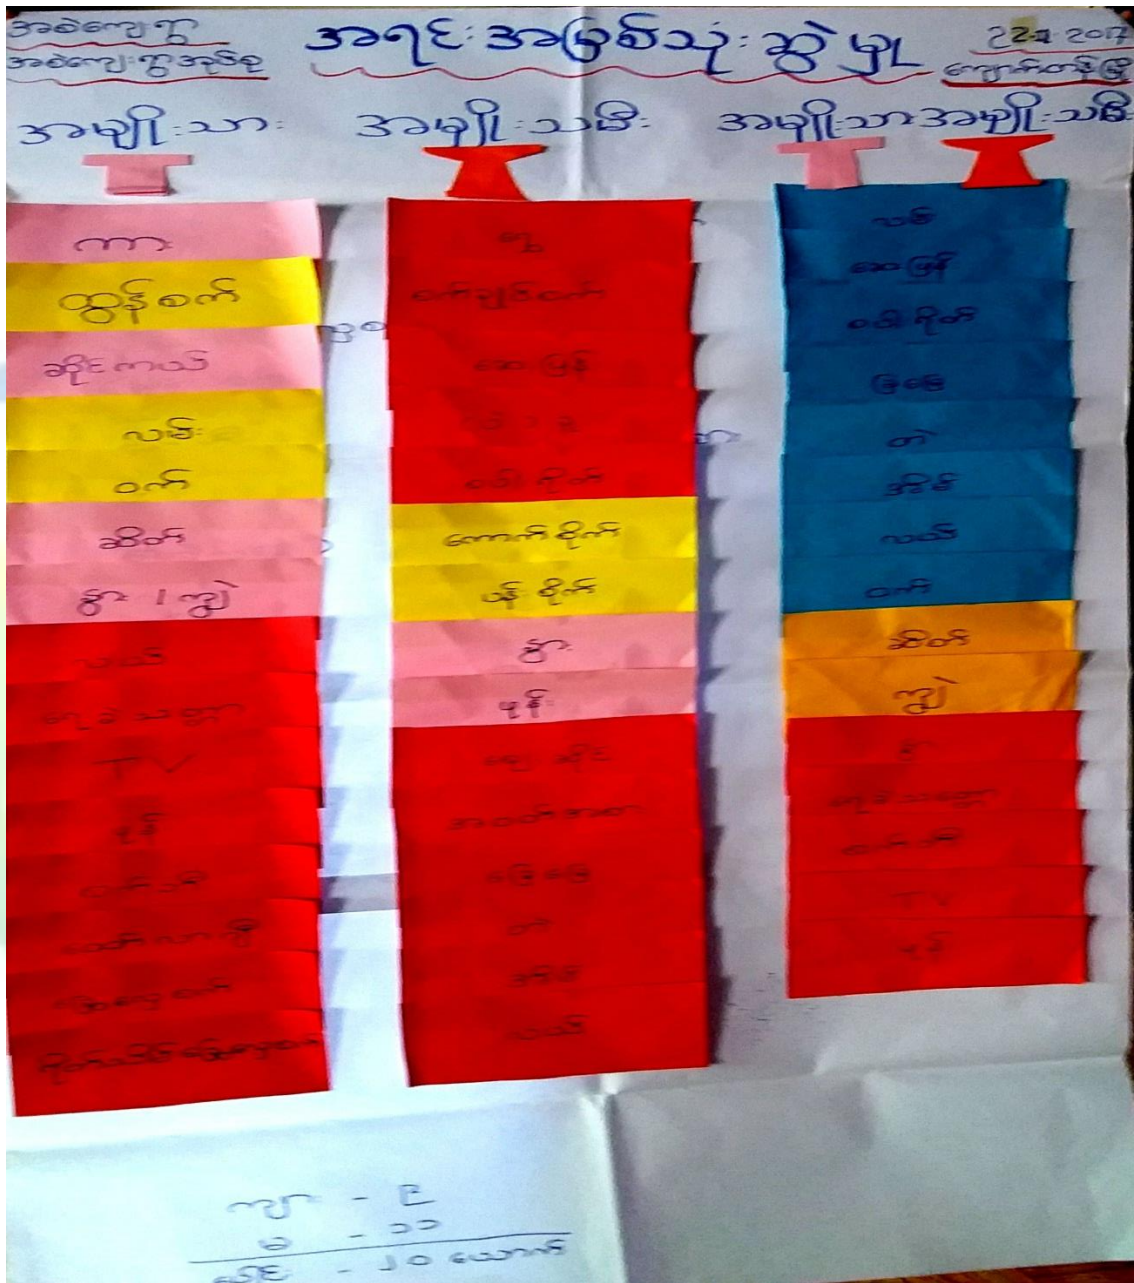 အစဲကျေးရွာ
အစဲကျေးရွာအုပ်စု
အရင်းအမြစ်သုံးဆွဲမှု
2017
ကျောက်တန်းမြို့
အမျိုးသား
အမျိုးသမီး
အမျိုးသား အမျိုးသမီး
ကား
ထွန်စက်
ဆိုင်ကယ်
လမ်း
ဝက်
ဆိတ်
နွား / ကျွဲ
လယ်
ရေခဲသေတ္တာ
TV
ဖုန်း
ရွှေ
စက်ချုပ်စက်
ဆေးမြန်
စပါးရိတ်
ကောက်စိုက်
ပန်းစိုက်
နွား
ဖုန်း
ဈေးဆိုင်
အဝတ်အစား
မြေမြေ
တဲ
အိမ်
လယ်
လမ်း
ဆေးမြန်
စပါးရိတ်
မြေမြေ
တဲ
အိမ်
လယ်
ဝက်
ဆိတ်
ကျွဲ
ရေခဲသေတ္တာ
TV
ဖုန်း
ကျား - ၉
မ - ၁၁
ပေါင်း - ၂၀ ယောက်